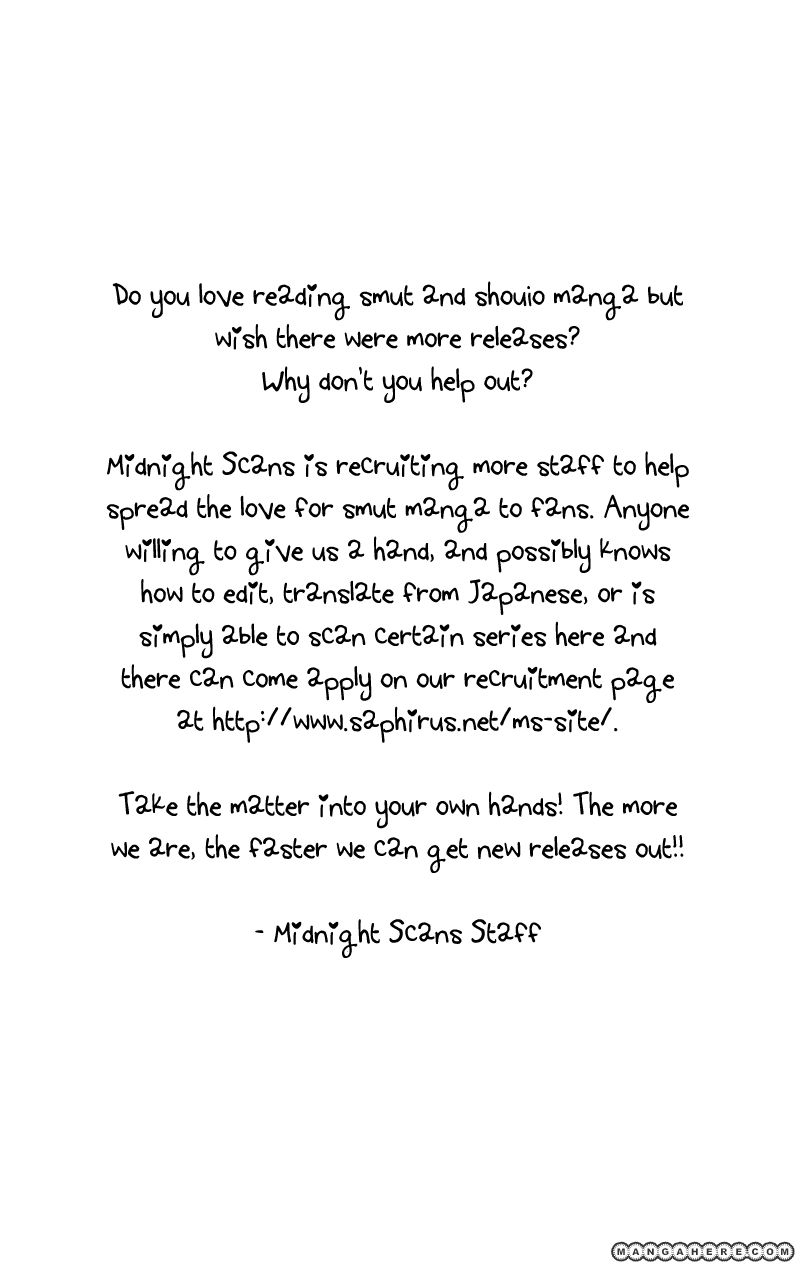 Do you love reading smut and shouio manga but
wish there were more releases?
Why don't you help out?
Midnight Scans is recruiting more staff to help
spread the love for smut manga to fans. Anyone
willing to give us a hand, and possibly knows
how to edit, translate from Japanese, or is
simply able to scan certain series here and
there can come apply on our recruitment page
at http://www.saphirus.net/ms-site/.
Take the matter into your own hands! The more
we are, the faster we can get new releases out!!
- Midnight Scans Staff
MANGAHERE.COM